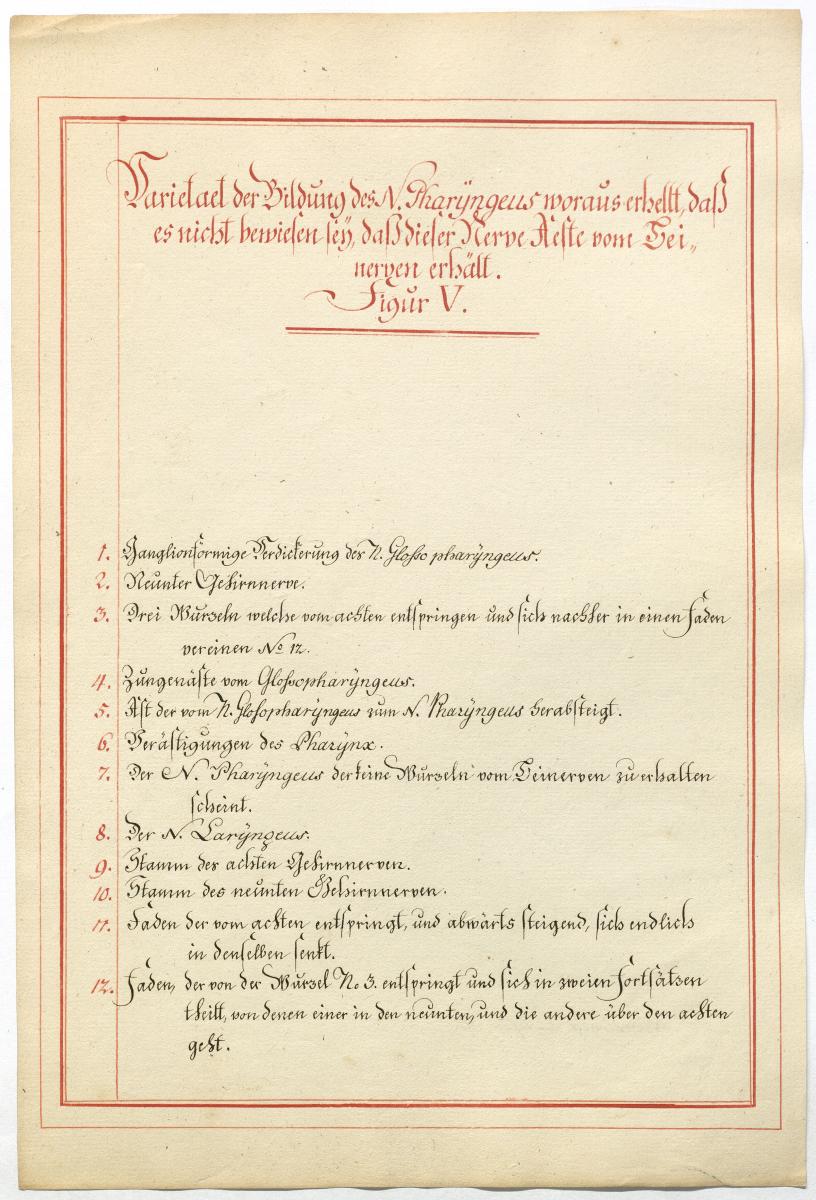 Varietaet der Bildung des N. Pharÿngeus woraus erhellt, daß
es nicht bewiesen seÿ, daß dieser Nerve Aeste vom Bei„
nerven erhält.
Figur V.
1. Ganglionförmige Verdickerung des N. Glosso pharÿngeus.
2. Neunter Gehirnnerve.
3. Drei Wurzeln welche vom achten entspringen und sich nachher in einen Faden
vereinen No 12.
4. Zungenäste vom Glossopharÿngeus.
5. Ast der vom N. Glosopharÿngeus zum N. Pharÿngeus herabsteigt.
6. Verästigungen des Pharÿnx.
7. Der N. Pharÿngeus der keine Wurzeln vom Beinerven zu erhalten
scheint.
8. Der N. Larÿngeus.
9. Stamm des achten Gehirnnerven.
10. Stamm des neunten Gehirnnerven.
11. Faden der vom achten entspringt, und abwärts steigend, sich endlich
in denselben senkt.
12. Faden, der von der Wurzel No 3. entspringt und sich in zweien Fortsätzen
theilt, von denen einer in den neunten, und die andere über den achten
geht.